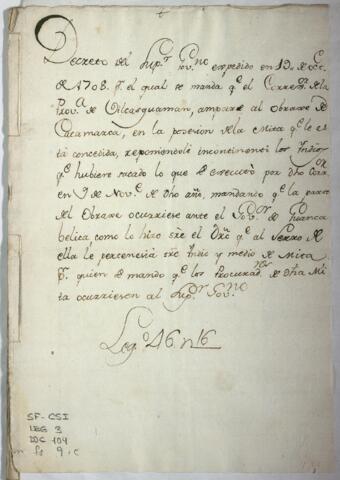 Decreto del Sup.r Gov.no expedido en 19 de Oct.e
de 1708. p.r el qual se manda q.e el Correx.or de la
Prov.a de Vilcasguaman, ampare al Obraxe de
Cacamarca, en la posesion de la Mita q.e le es
tá concedida, reponiendole incontinenti los Indios
q.e hubiere sacado lo que se executó por dho Corr.or
en 9 de Nov.e de dho año, mandando q.e la parte
del Obraxe ocurriese ante el Gov.or de Huanca
belica como lo hizo sre el Dro q.e al Serro de
ella le pertenecia sre Indio y medio de Mita
p.r quien se mandó q.e los Procurad.res de dha Mi
ta ocurriesen al Sup.r Gov.no
Leg.o 46. n 16
SF-CSI
LEG 3
DOC 104
fs 9, c